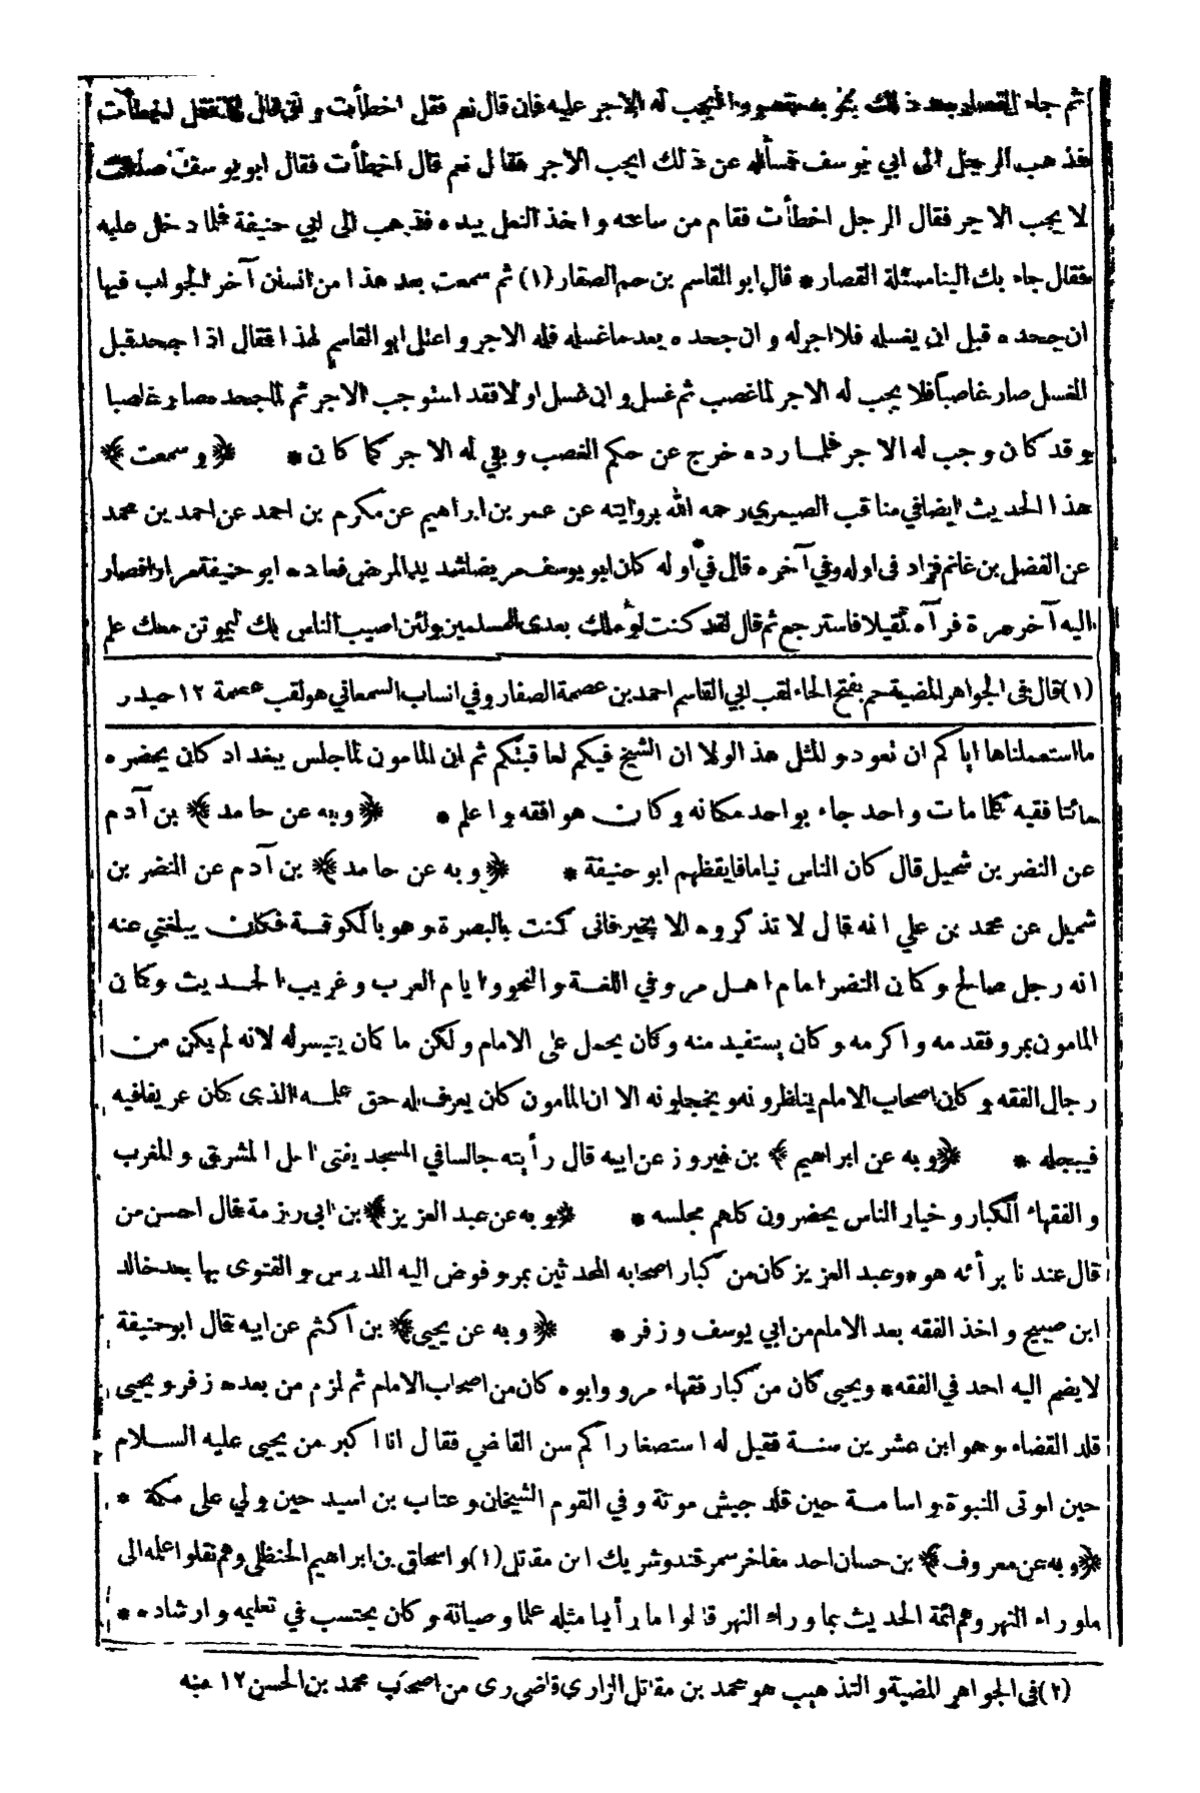 ثم جاء القصار بعد ذلك بثوبه مقصورا أيجب له الاجر عليه فان قال نعم فقل اخطأت و لئن قال لا فقل اخطأت
فذهب الرجل الى ابي يوسف فسأله عن ذلك ايجب الاجر فقال نعم قال اخطأت فقال ابو يوسف صدقت
لا يجب الاجر فقال الرجل اخطأت فقام من ساعته و اخذ النعل بيده فذهب الى ابي حنيفة فلما دخل عليه
فقال جاء بك الينا مسئلة القصار * قال ابو القاسم بن حم الصفار (١) ثم سمعت بعد هذا من انسان آخر الجواب فيها
ان جحده قبل ان يغسله فلا اجر له و ان جحده بعد ما غسله فله الاجر و اعتل ابو القاسم لهذا فقال اذا جحد قبل
الغسل صار غاصبا فلا يجب له الاجر لما غصب ثم غسل و ان غسل او لا فقد استوجب الاجر ثم لما جحد صار غاصبا
و قد كان وجب له الاجر فلما رده خرج عن حكم الغصب و بقي له الاجر كما كان * ﴿و سمعت﴾
هذا الحديث ايضا في مناقب الصيمري رحمه الله بروايته عن عمر بن ابراهيم عن مكرم بن احمد عن احمد بن محمد
عن الفضل بن غانم فزاد فى اوله وفي آخره قال في اوله كان ابو يوسف مريضا شديد المرض فعاده ابو حنيفة مرارا فصار
اليه آخر مرة فرآه ثقيلا فاسترجع ثم قال لقد كنت اؤملك بعدى للمسلمين ولئن اصيب الناس بك ليموتن معك علم
(١) قال فى الجواهر المضية حم بفتح الحاء لقب ابي القاسم احمد بن عصمة الصفار وفي انساب السمعاني هو لقب عصمة ١٢ حيدر
ما استعملناها اياكم ان تعودو لمثل هذا لولا ان الشيخ فيكم لعاقبتكم ثم ان المامون لما جلس ببغداد كان يحضره
مائتا فقيه كلما مات واحد جاء بواحد مكانه وكان هو افقه و اعلم * ﴿و به عن حامد﴾ بن آدم
عن النضر بن شميل قال كان الناس نياما فايقظهم ابو حنيفة * ﴿و به عن حامد﴾ بن آدم عن النضر بن
شميل عن محمد بن علي انه قال لا تذكروه الا بخير فانى كنت بالبصرة و هو بالكوفة فكان يبلغني عنه
انه رجل صالح و كان النضر امام اهل مرو في اللغة و النحو و ايام العرب و غريب الحديث و كان
المامون بمرو فقدمه و اكرمه و كان يستفيد منه وكان يحمل على الامام و لكن ما كان يتيسر له لانه لم يكن من
رجال الفقه و كان اصحاب الامام يناظرونه و يخجلونه الا ان المامون كان يعرف له حق علمه الذى كان عريفا فيه
فيبجله * ﴿و به عن ابراهيم﴾ بن فيروز عن ابيه قال رأيته جالسا في المسجد يفتى اهل المشرق و المغرب
و الفقهاء الكبار و خيار الناس يحضرون كلهم مجلسه * ﴿و به عن عبد العزيز﴾ بن ابى رزمة قال احسن من
قال عندنا برأئه هو * وعبد العزيز كان من كبار اصحابه المحدثين بمرو فوض اليه الدرس و الفتوى بها بعد خالد
ابن صبيح و اخذ الفقه بعد الامام من ابي يوسف و زفر * ﴿و به عن يحيى﴾ بن اكثم عن ابيه قال ابو حنيفة
لا يضم اليه احد في الفقه * ويحيى كان من كبار فقهاء مرو وابوه كان من اصحاب الامام ثم لزم من بعده زفر و يحيى
قلد القضاء و هو ابن عشرين سنة فقيل له استصغارا كم سن القاضي فقال انا اكبر من يحيى عليه السلام
حين اوتى النبوة و اسامة حين قلد جيش موتة و في القوم الشيخان و عتاب بن اسيد حين ولي على مكة *
﴿و به عن معروف﴾ بن حسان احد مفاخر سمرقند و شريك ابن مقاتل (١) و اسحاق بن ابراهيم الحنظلي وهم نقلوا علمه الى
ماوراء النهر وهم ائمة الحديث بما وراء النهر قالوا ما رأينا مثله علما و صيانة و كان يحتسب في تعليمه و ارشاده *
(٢) فى الجواهر المضية و التذهيب هو محمد بن مقاتل الرازي قاضى رى من اصحاب محمد بن الحسن ١٢ منه